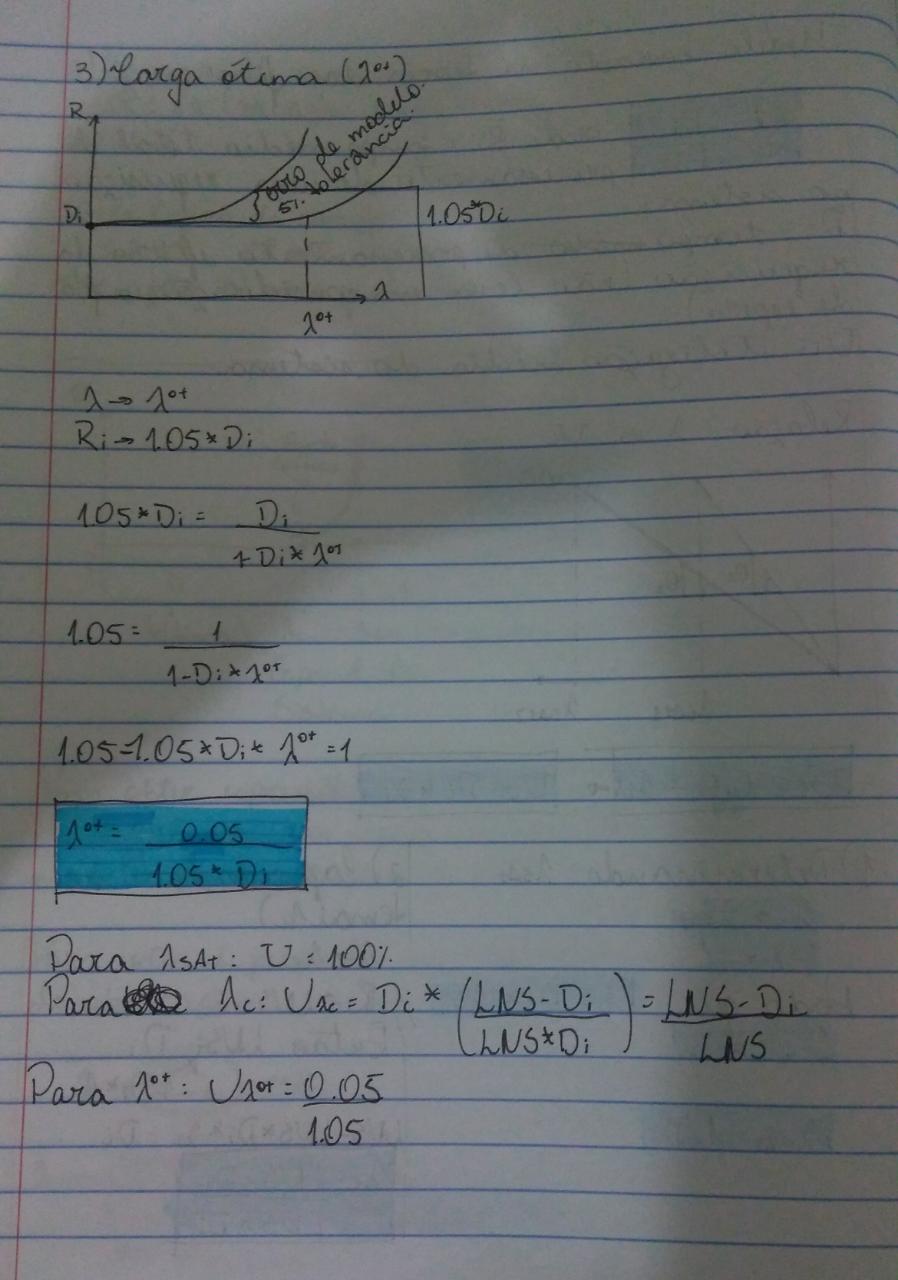 3) Carga ótima (λᵒᵗ)
R
erro de modelo.
5% tolerância.
Di
1.05*Di
λ
λᵒᵗ
λ → λᵒᵗ
Ri → 1.05*Di
1.05*Di = Di
1-Di*λᵒᵗ
1.05 = 1
1-Di*λᵒᵗ
1.05-1.05*Di*λᵒᵗ=1
λᵒᵗ = 0.05
1.05*Di
Para λSAt: U = 100%
Para λc: Uλc = Di*(LNS-Di) = LNS-Di
(LNS*Di) LNS
Para λᵒᵗ: Uλᵒᵗ = 0.05
1.05